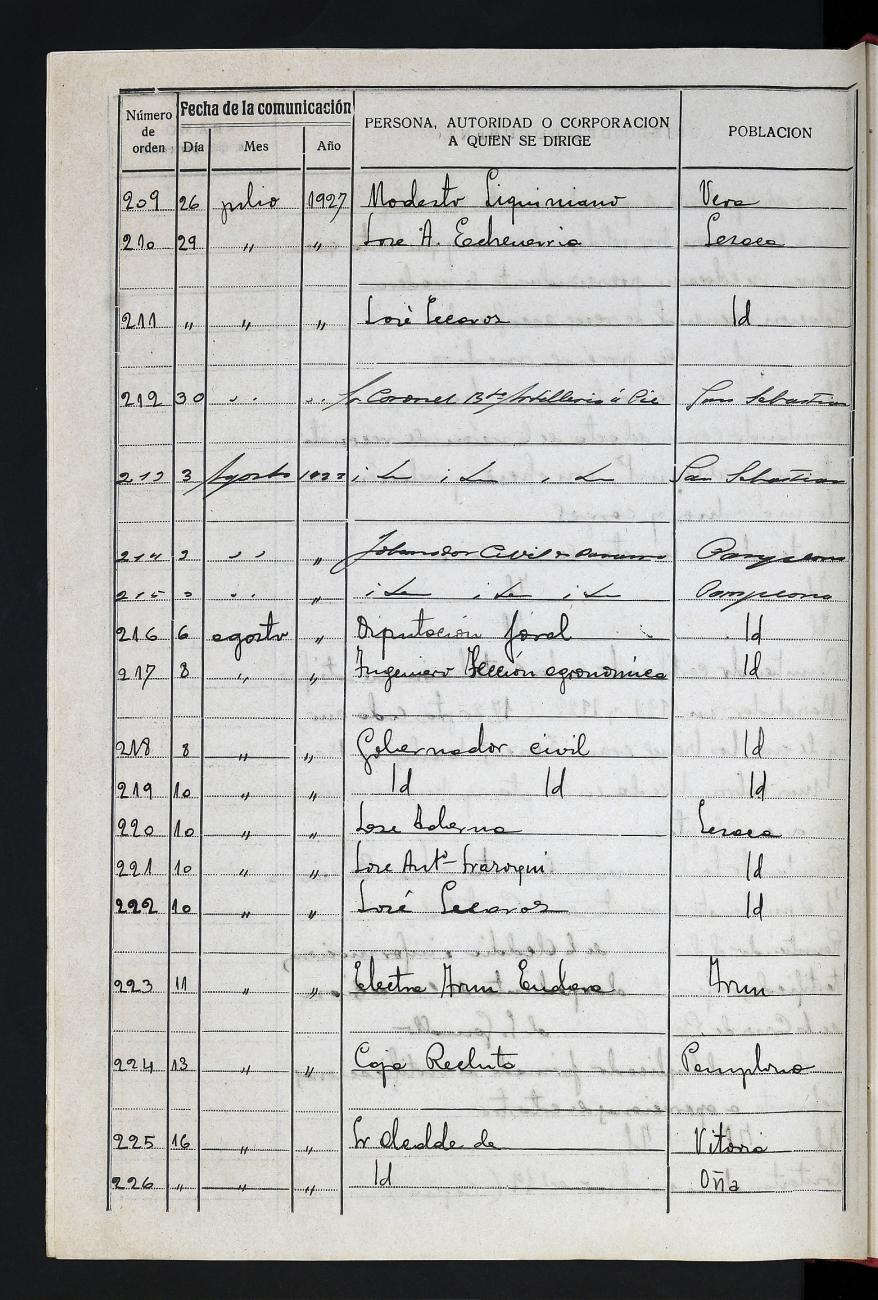 Número de orden Fecha de la comunicación PERSONA, AUTORIDAD O CORPORACION A QUIEN SE DIRIGE POBLACION
Día Mes Año
209 26 julio 1927 Modesto Liquiniano Vera
210 29 " " José A. Echeverria Lesaca
211 " " " José Id
212 30 " " Sr Coronel 13º Artilleria á Pie San Sebastian
213 3 Agosto 1927 San Sebastian
214 " " Gobernador Civil Pamplona
215 " " Pamplona
216 6 agosto " Diputación foral Id
217 8 " " Ingeniero Sección agronómica Id
218 8 " " Gobernador civil Id
219 10 " " Id Id Id
220 10 " " Jose Lesaca
221 10 " " Jose Antº Irazoqui Id
222 10 " " José Id
223 11 " " Electra Irun Endara Irun
224 13 " " Caja Recluta Pamplona
225 16 " " Sr Alcalde de Vitoria
226 " " " Id Oña